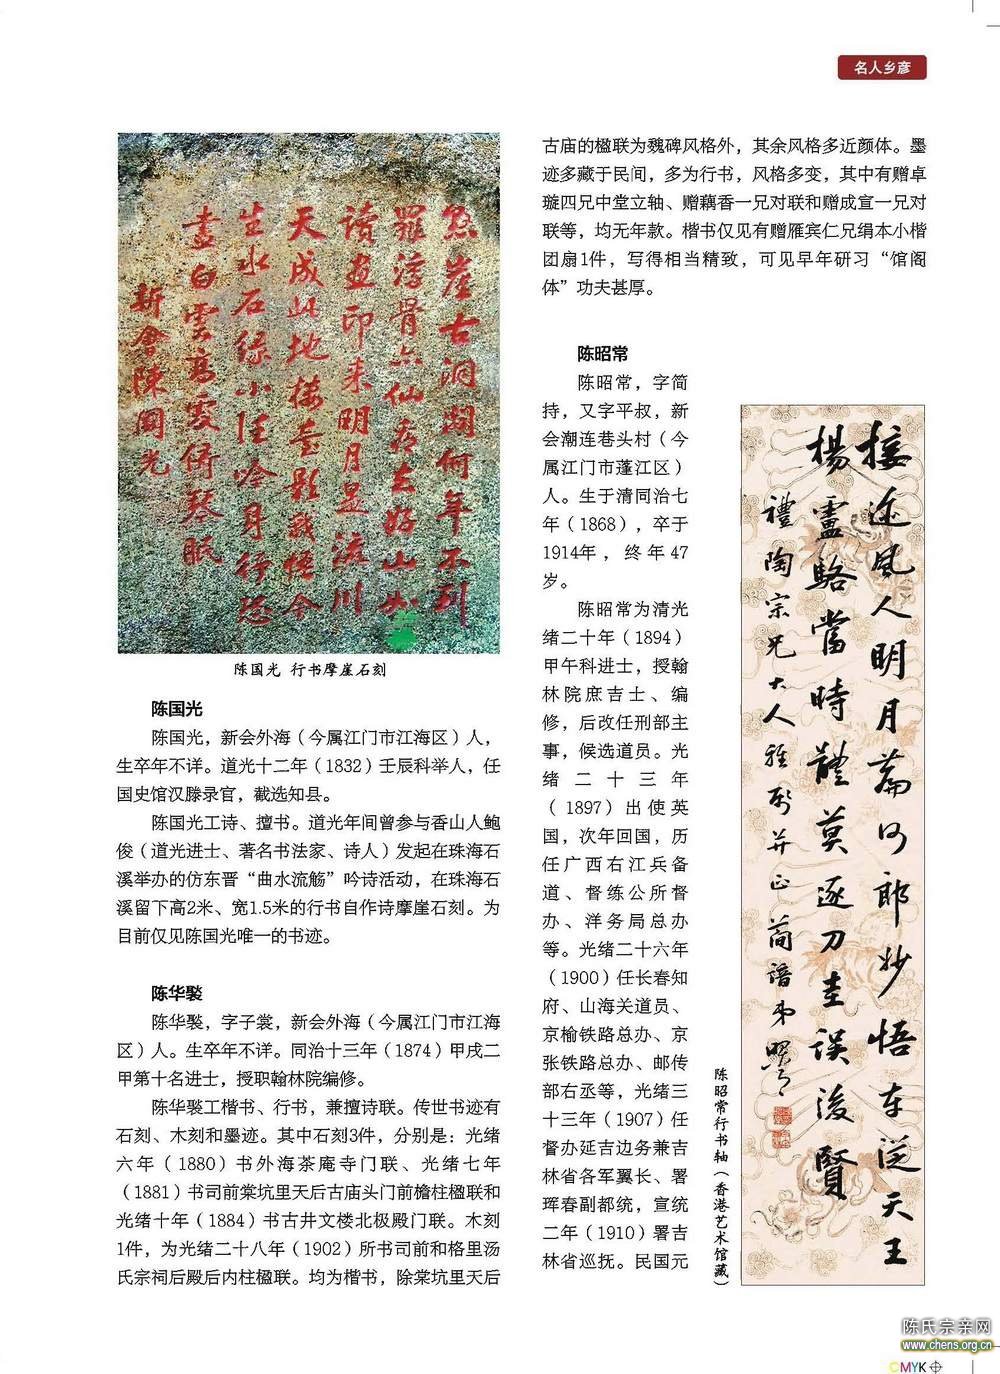 名人乡彦
崖古洞闢何年不到
羅浮骨亦仙為愛好山如
讀畫印来明月是流川
天成此地接影我悟今
生水石緣小住吟身行恐
盡白雲高處倚琴眠
新會陳國光
陈国光 行书摩崖石刻
陈国光
陈国光，新会外海（今属江门市江海区）人，
生卒年不详。道光十二年（1832）壬辰科举人，任
国史馆汉滕录官，截选知县。
陈国光工诗、擅书。道光年间曾参与香山人鲍
俊（道光进士、著名书法家、诗人）发起在珠海石
溪举办的仿东晋“曲水流觞”吟诗活动，在珠海石
溪留下高2米、宽1.5米的行书自作诗摩崖石刻。为
目前仅见陈国光唯一的书迹。
陈华褧
陈华褧，字子裳，新会外海（今属江门市江海
区）人。生卒年不详。同治十三年（1874）甲戌二
甲第十名进士，授职翰林院编修。
陈华褧工楷书、行书，兼擅诗联。传世书迹有
石刻、木刻和墨迹。其中石刻3件，分别是：光绪
六年（1880）书外海茶庵寺门联、光绪七年
（1881）书司前棠坑里天后古庙头门前檐柱楹联和
光绪十年（1884）书古井文楼北极殿门联。木刻
1件，为光绪二十八年（1902）所书司前和格里汤
氏宗祠后殿后内柱楹联。均为楷书，除棠坑里天后
古庙的楹联为魏碑风格外，其余风格多近颜体。墨
迹多藏于民间，多为行书，风格多变，其中有赠卓
璇四兄中堂立轴、赠藕香一兄对联和赠成宣一兄对
联等，均无年款。楷书仅见有赠雁宾仁兄绢本小楷
团扇1件，写得相当精致，可见早年研习“馆阁
体”功夫甚厚。
陈昭常
陈昭常，字简
持，又字平叔，新
会潮连巷头村（今
属江门市蓬江区）
人。生于清同治七
年（1868），卒于
1914年，终年47
岁。
陈昭常为清光
绪二十年（1894）
甲午科进士，授翰
林院庶吉士、编
修，后改任刑部主
事，候选道员。光
绪二十三年
（1897）出使英
国，次年回国，历
任广西右江兵备
道、督练公所督
办、洋务局总办
等。光绪二十六年
（1900）任长春知
府、山海关道员、
京榆铁路总办、京
张铁路总办、邮传
部右丞等，光绪三
十三年（1907）任
督办延吉边务兼吉
林省各军翼长、署
珲春副都统，宣统
二年（1910）署吉
林省巡抚。民国元
接迹風人明月篇何郎妙悟本從天王
楊盧駱當時體莫逐刀圭誤後賢
禮陶宗兄大人雅并正簡弟昭常
陈昭常行书轴（香港艺术馆藏）
陈氏宗亲网
www.chens.org.cn
CMYK